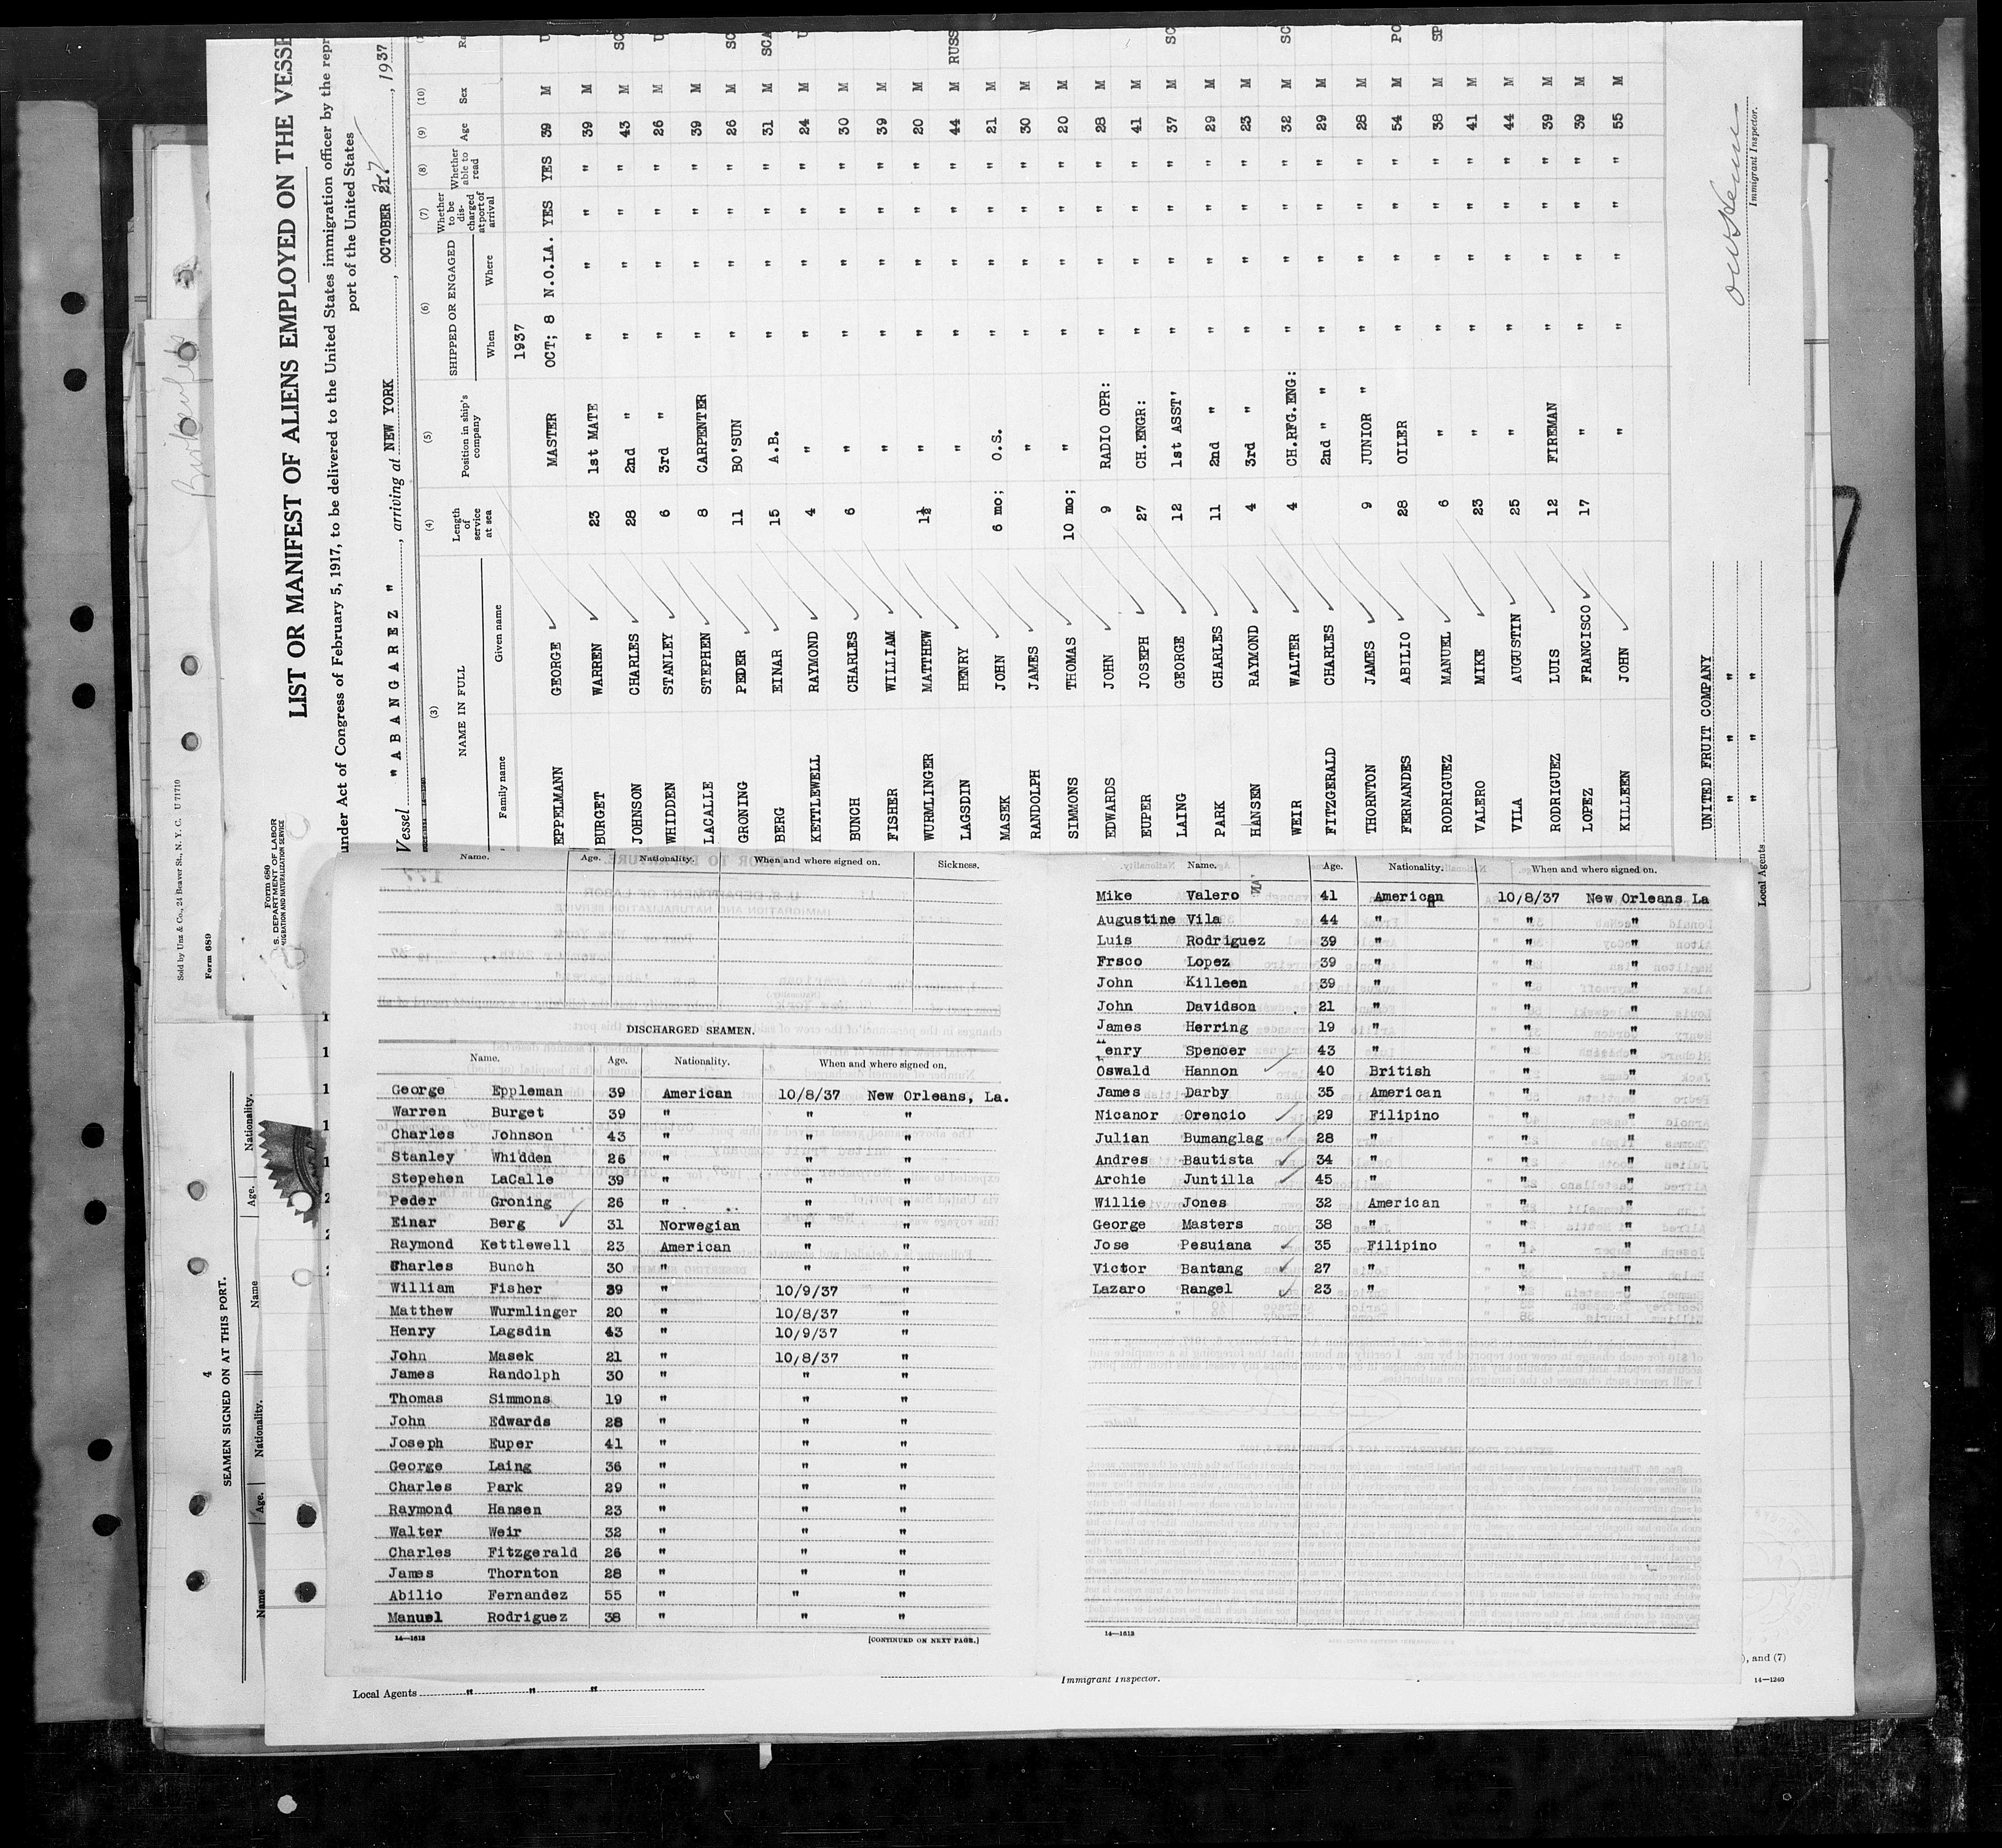 LIST OR MANIFEST OF ALIENS EMPLOYED ON THE VESSE
under Act of Congress of February 5, 1917, to be delivered to the United States immigration officer by the repr
port of the United States
Vessel " A B A N G A R E Z ", arriving at NEW YORK, OCTOBER 21, 1937
(3) (4) (5) (6) (7) (8) (9) (10)
NAME IN FULL
Family name Given name
Length of service at sea
Position in ship's company
SHIPPED OR ENGAGED
When Where
Whether to be discharged at port of arrival
Whether able to read
Age Sex
1937
EPPELMANN GEORGE MASTER OCT; 8 N.O.LA. YES YES 39 M
BURGET WARREN 23 1st MATE " " " " 39 M
JOHNSON CHARLES 28 2nd " " " " " 43 M SC
WHIDDEN STANLEY 6 3rd " " " " " 26 M
LACALLE STEPHEN 8 CARPENTER " " " " 39 M
GRONING PEDER 11 BO'SUN " " " " 26 M SC
BERG EINAR 15 A.B. " " " " 31 M SCA
KETTLEWELL RAYMOND 4 " " " " " 24 M
BUNCH CHARLES 6 " " " " " 30 M
FISHER WILLIAM " " " " " 39 M
WURMLINGER MATTHEW 1½ " " " " " 20 M
LAGSDIN HENRY " " " " " 44 M RUSS
MASEK JOHN 6 mo; O.S. " " " " 21 M
RANDOLPH JAMES " " " " " 30 M
SIMMONS THOMAS 10 mo; " " " " " 20 M
EDWARDS JOHN 9 RADIO OPR: " " " " 28 M
EUPER JOSEPH 27 CH.ENGR: " " " " 41 M
LAING GEORGE 12 1st ASST' " " " " 37 M SC
PARK CHARLES 11 2nd " " " " " 29 M
HANSEN RAYMOND 4 3rd " " " " " 23 M
WEIR WALTER 4 CH.RFG.ENG: " " " " 32 M SC
FITZGERALD CHARLES 2nd " " " " " " 29 M
THORNTON JAMES 9 JUNIOR " " " " " 28 M
FERNANDES ABILIO 28 OILER " " " " 54 M PO
RODRIGUEZ MANUEL 6 " " " " " 38 M SP
VALERO MIKE 23 " " " " " 41 M
VILA AUGUSTIN 25 " " " " " 44 M
RODRIGUEZ LUIS 12 FIREMAN " " " " 39 M
LOPEZ FRANCISCO 17 " " " " " 39 M
KILLEEN JOHN " " " " " 55 M
UNITED FRUIT COMPANY
" " "
Local Agents " " "
Immigrant Inspector.
Form 680
S. DEPARTMENT OF LABOR
MIGRATION AND NATURALIZATION SERVICE
Sold by Unz & Co., 24 Beaver St., N. Y. C. U 71710
Form 689
4
SEAMEN SIGNED ON AT THIS PORT.
Name Age. Nationality. Name Age. Nationality.
Name. Age. Nationality. When and where signed on. Sickness.
DISCHARGED SEAMEN.
Name. Age. Nationality. When and where signed on.
George Eppleman 39 American 10/8/37 New Orleans, La.
Warren Burget 39 " " "
Charles Johnson 43 " " "
Stanley Whidden 26 " " "
Stepehen LaCalle 39 " " "
Peder Groning 26 " " "
Einar Berg 31 Norwegian " "
Raymond Kettlewell 23 American " "
Charles Bunch 30 " " "
William Fisher 39 " 10/9/37 "
Matthew Wurmlinger 20 " 10/8/37 "
Henry Lagsdin 43 " 10/9/37 "
John Masek 21 " 10/8/37 "
James Randolph 30 " " "
Thomas Simmons 19 " " "
John Edwards 28 " " "
Joseph Euper 41 " " "
George Laing 36 " " "
Charles Park 29 " " "
Raymond Hansen 23 " " "
Walter Weir 32 " " "
Charles Fitzgerald 26 " " "
James Thornton 28 " " "
Abilio Fernandez 55 " " "
Manuel Rodriguez 38 " " "
14—1613 [CONTINUED ON NEXT PAGE.]
Name. Age. Nationality. When and where signed on.
Mike Valero 41 American 10/8/37 New Orleans La
Augustine Vila 44 " " "
Luis Rodriguez 39 " " "
Frsco Lopez 39 " " "
John Killeen 39 " " "
John Davidson 21 " " "
James Herring 19 " " "
Henry Spencer 43 " " "
Oswald Hannon 40 British " "
James Darby 35 American " "
Nicanor Orencio 29 Filipino " "
Julian Bumanglag 28 " " "
Andres Bautista 34 " " "
Archie Juntilla 45 " " "
Willie Jones 32 American " "
George Masters 38 " " "
Jose Pesuiana 35 Filipino " "
Victor Bantang 27 " " "
Lazaro Rangel 23 " " "
14—1613
Local Agents " " "
Immigrant Inspector.
), and (7)
14—1240